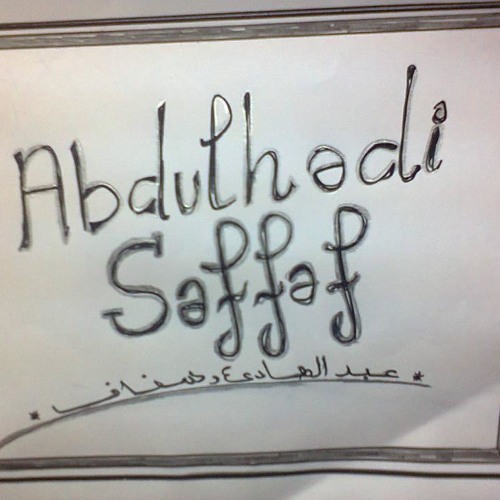 Abdulhadi
Saffaf
عبد الهادي